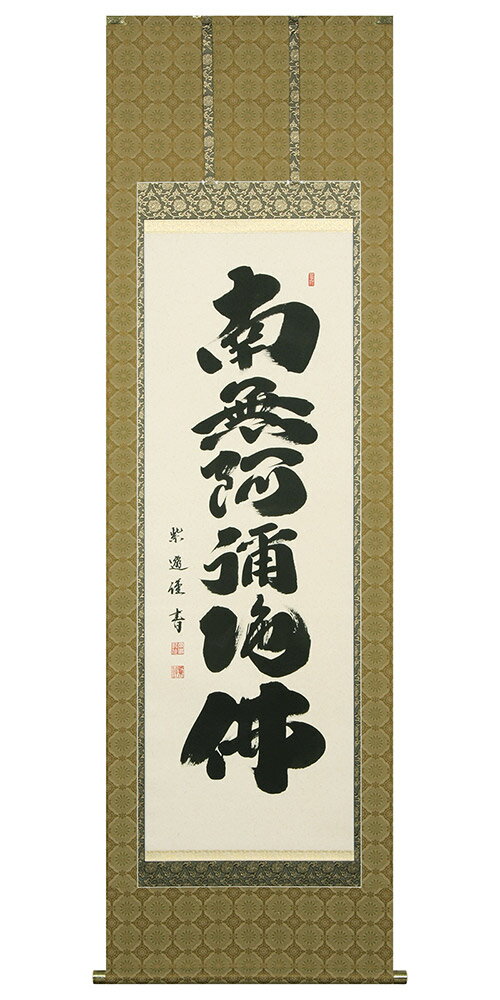 南無阿彌陀佛
紫邉僅書